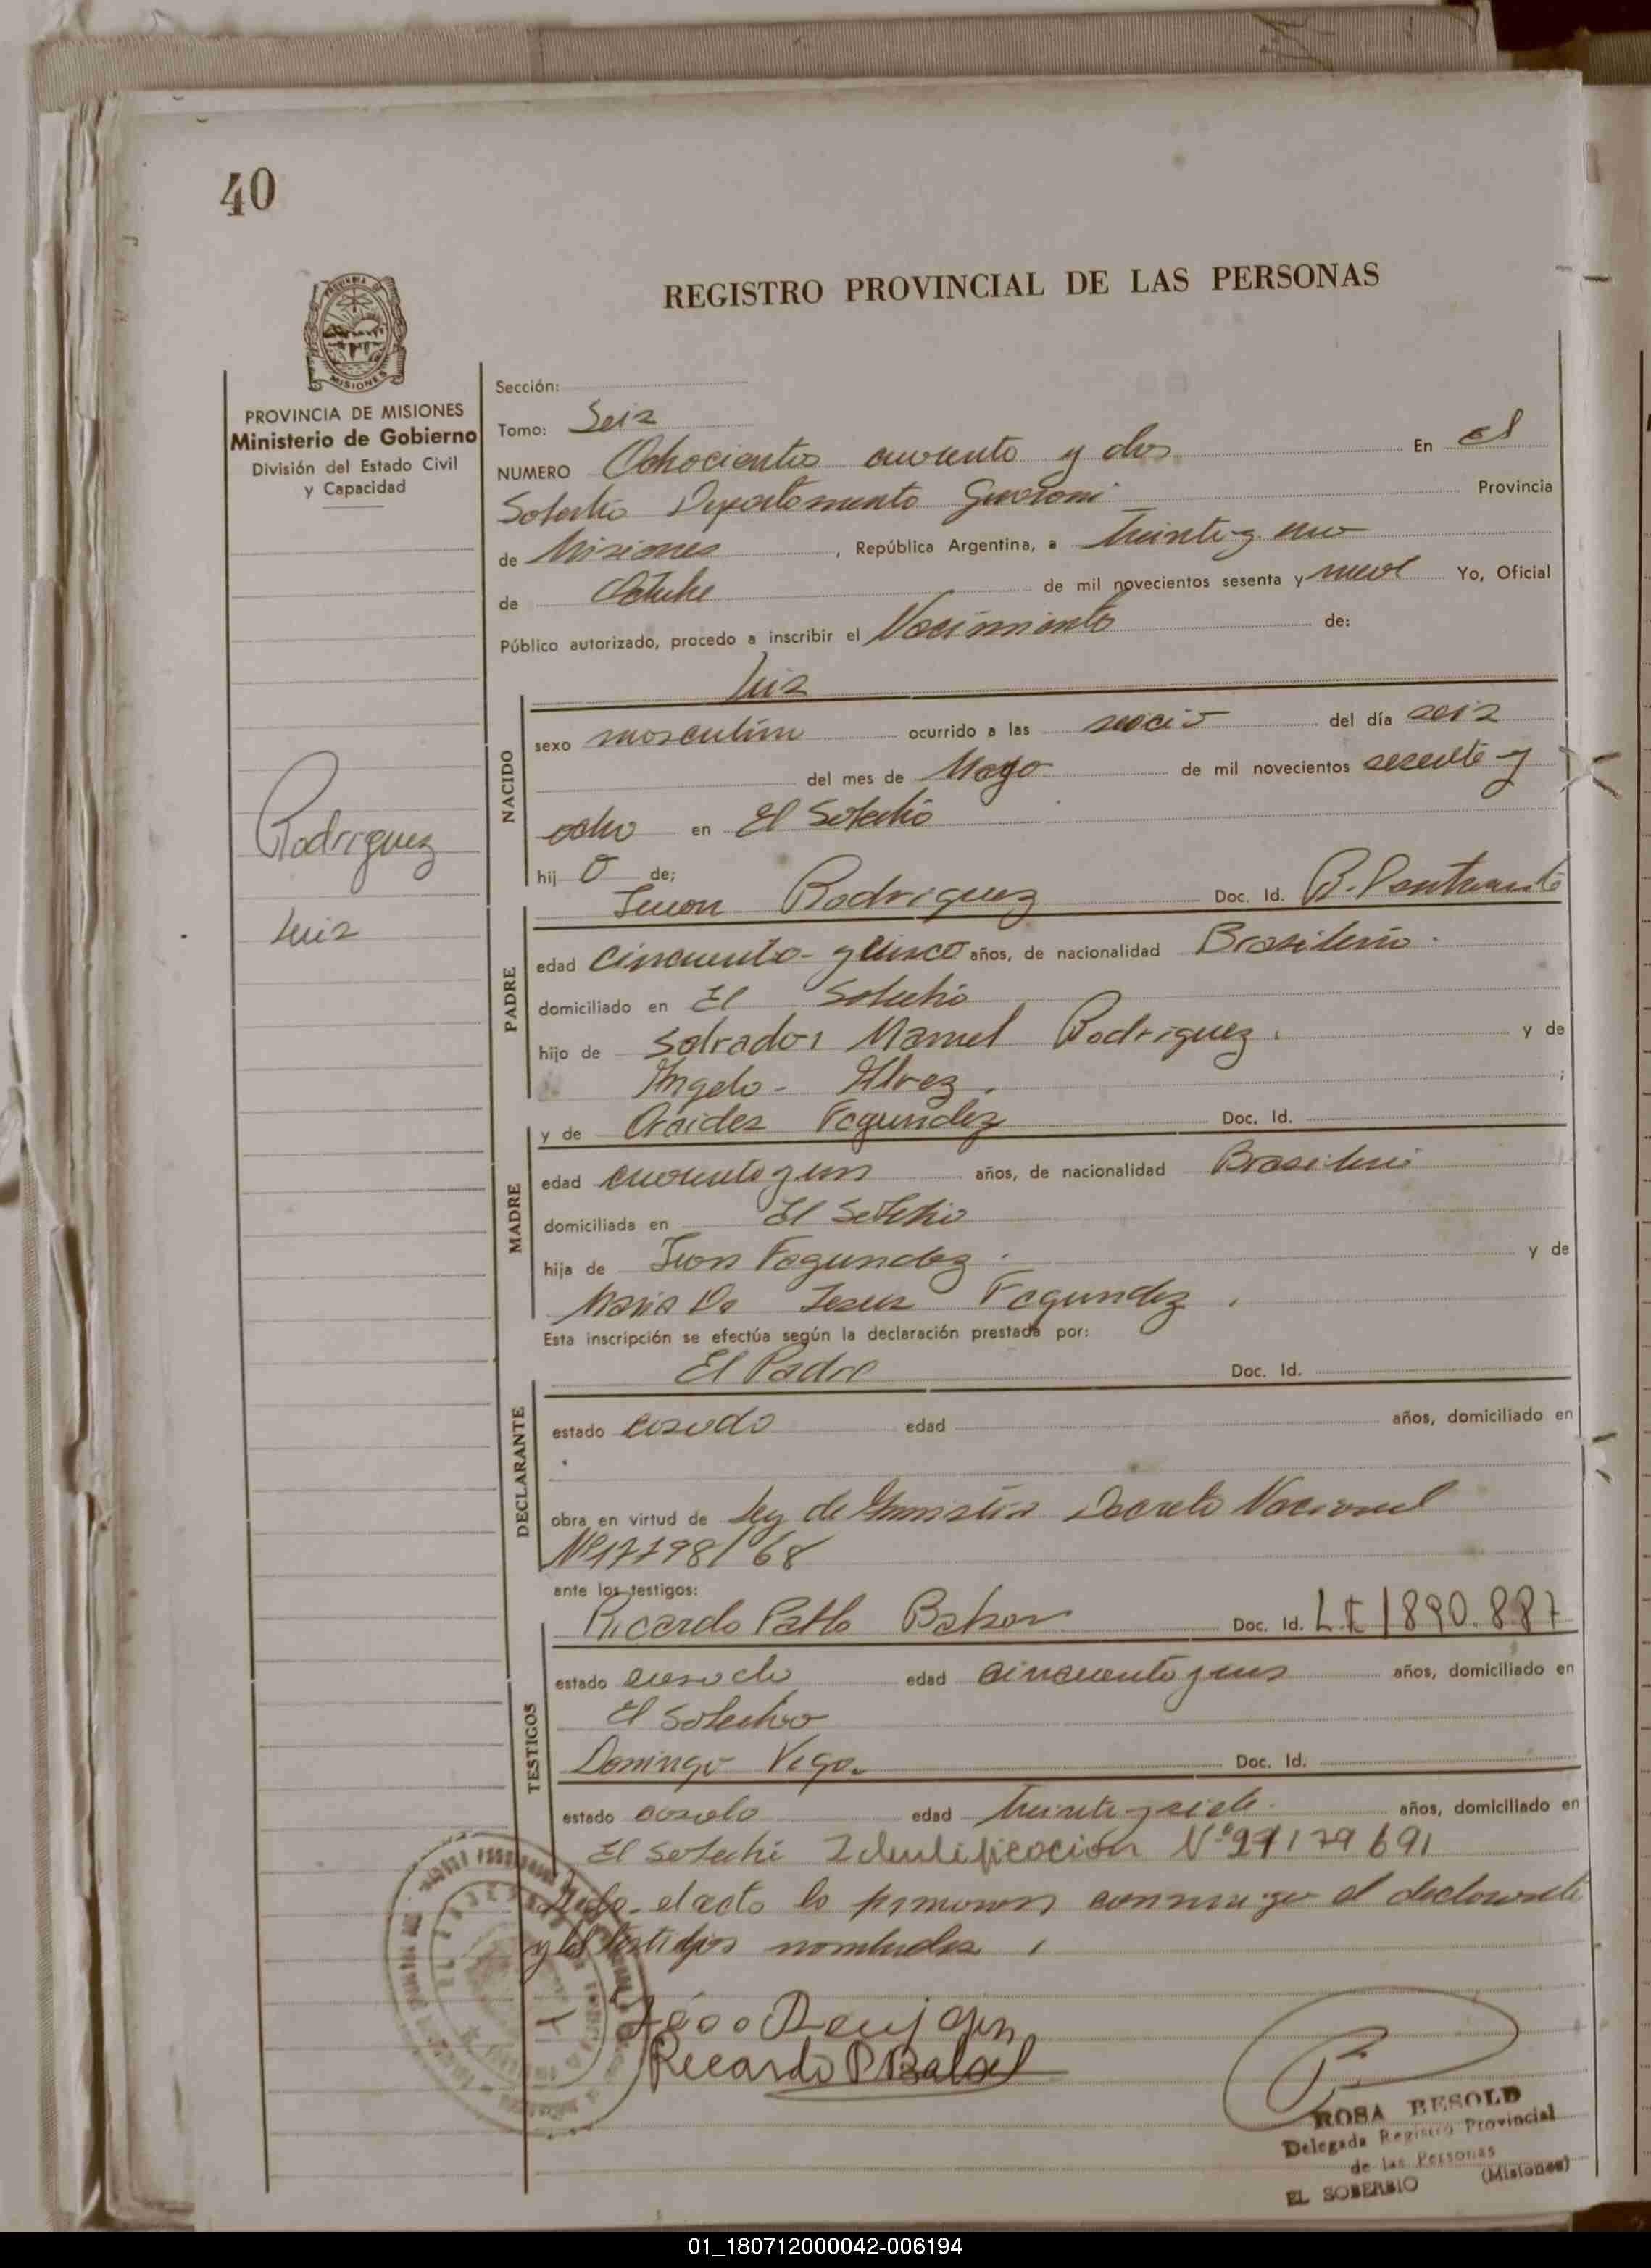 40
REGISTRO PROVINCIAL DE LAS PERSONAS
MISIONES
PROVINCIA DE MISIONES
Ministerio de Gobierno
División del Estado Civil
y Capacidad
Rodriguez
Luis
Sección:
Tomo: Seis
NUMERO Ochocientos cuarenta y dos En el
Soberbio Departamento Guarani Provincia
de Misiones, República Argentina, a treinta y uno
de Octubre de mil novecientos sesenta y nueve Yo, Oficial
Público autorizado, procedo a inscribir el Nacimiento de:
Luis
NACIDO
sexo masculino ocurrido a las del día seis
del mes de Mayo de mil novecientos sesenta y
ocho en El Soberbio
hij o de;
Juan Rodriguez Doc. Id.
PADRE
edad cincuenta y cinco años, de nacionalidad Brasileño.
domiciliado en El Soberbio
hijo de Salvador Manuel Rodriguez. y de
Angela Alvez. ;
y de Oraides Fagundez Doc. Id.
MADRE
edad cuarenta y un años, de nacionalidad Brasileña
domiciliada en El Soberbio
hija de Juan Fagundez. y de
Maria De Jesus Fagundez.
Esta inscripción se efectúa según la declaración prestada por:
El Padre Doc. Id.
DECLARANTE
estado casado edad años, domiciliado en
obra en virtud de Ley de Amnistia Decreto Nacional
Nº 17798/68
ante los testigos:
Ricardo Pablo Doc. Id. L.E 1890.887
TESTIGOS
estado casado edad cincuenta y uno años, domiciliado en
El Soberbio
Domingo Vega. Doc. Id.
estado casado edad treinta y siete. años, domiciliado en
El Soberbio Identificacion Nº
el acto lo firmaron conmigo el declarante
y los testigos nombrados
Ricardo P
ROSA BESOLD
Delegada Registro Provincial
de las Personas
EL SOBERBIO (Misiones)
01_180712000042-006194